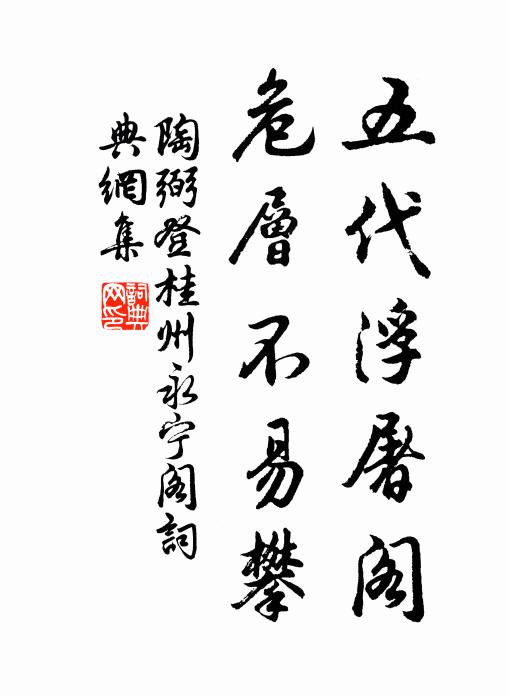 五代浮屠阁
危層不易攀
陶弼登桂州永宁阁詞
典網集
詞典
网印